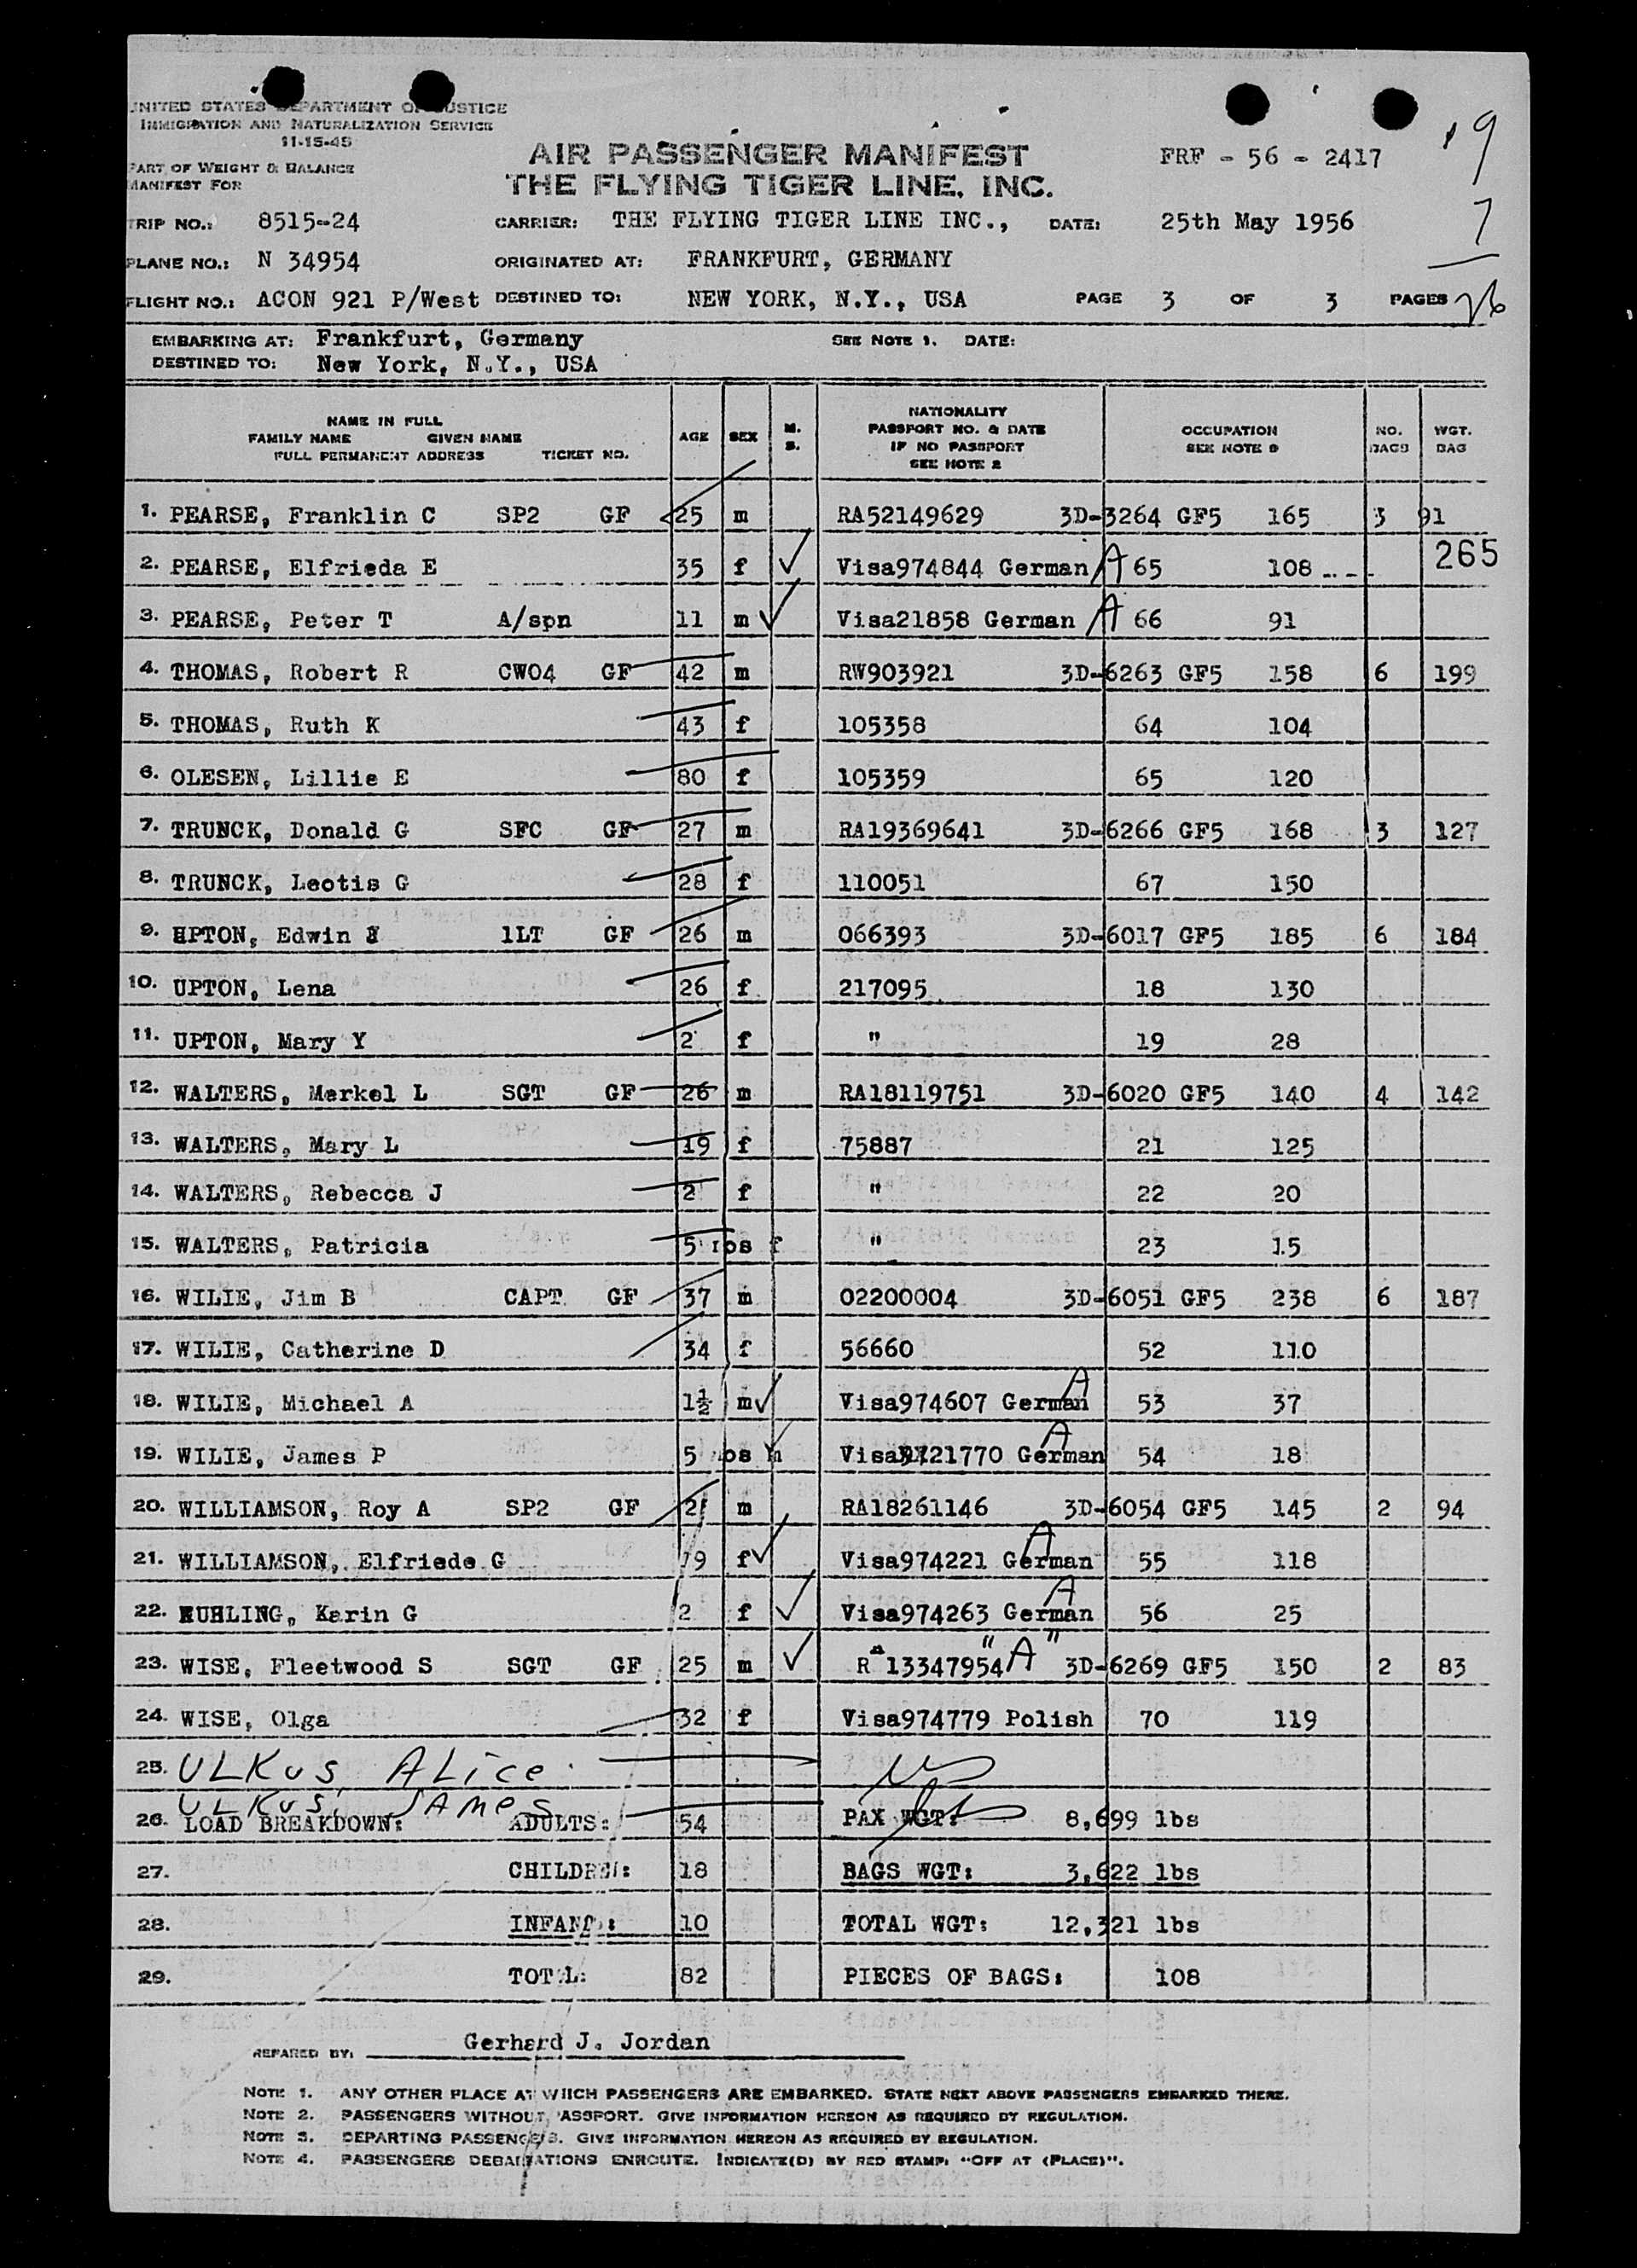 UNITED STATES DEPARTMENT OF JUSTICE
IMMIGRATION AND NATURALIZATION SERVICE
11-15-45
PART OF WEIGHT & BALANCE
MANIFEST FOR
AIR PASSENGER MANIFEST
THE FLYING TIGER LINE, INC.
FRF - 56 - 2417
19
7
26
TRIP NO.: 8515-24 CARRIER: THE FLYING TIGER LINE INC., DATE: 25th May 1956
PLANE NO.: N 34954 ORIGINATED AT: FRANKFURT, GERMANY
FLIGHT NO.: ACON 921 P/West DESTINED TO: NEW YORK, N.Y., USA PAGE 3 OF 3 PAGES
EMBARKING AT: Frankfurt, Germany SEE NOTE 1. DATE:
DESTINED TO: New York, N.Y., USA
NAME IN FULL
FAMILY NAME GIVEN NAME
FULL PERMANENT ADDRESS TICKET NO.
AGE SEX M. S.
NATIONALITY
PASSPORT NO. & DATE
IF NO PASSPORT
SEE NOTE 2
OCCUPATION
SEE NOTE 3
NO. BAGS
WGT. BAG
1. PEARSE, Franklin C SP2 GF 25 m RA52149629 3D-3264 GF5 165 3 91
2. PEARSE, Elfrieda E 35 f Visa974844 German A 65 108 265
3. PEARSE, Peter T A/spn 11 m Visa21858 German A 66 91
4. THOMAS, Robert R CWO4 GF 42 m RW903921 3D-6263 GF5 158 6 199
5. THOMAS, Ruth K 43 f 105358 64 104
6. OLESEN, Lillie E 80 f 105359 65 120
7. TRUNCK, Donald G SFC GF 27 m RA19369641 3D-6266 GF5 168 3 127
8. TRUNCK, Leotis G 28 f 110051 67 150
9. UPTON, Edwin 1LT GF 26 m 066393 3D-6017 GF5 185 6 184
10. UPTON, Lena 26 f 217095 18 130
11. UPTON, Mary Y 2 f " 19 28
12. WALTERS, Merkel L SGT GF 26 m RA18119751 3D-6020 GF5 140 4 142
13. WALTERS, Mary L 19 f 75887 21 125
14. WALTERS, Rebecca J 2 f " 22 20
15. WALTERS, Patricia 5 mos f " 23 15
16. WILIE, Jim B CAPT GF 37 m 02200004 3D-6051 GF5 238 6 187
17. WILIE, Catherine D 34 f 56660 52 110
18. WILIE, Michael A 1½ m Visa974607 German A 53 37
19. WILIE, James P 5 mos m Visa 21770 German A 54 18
20. WILLIAMSON, Roy A SP2 GF 2 m RA18261146 3D-6054 GF5 145 2 94
21. WILLIAMSON, Elfriede G 19 f Visa974221 German A 55 118
22. RUHLING, Karin G 2 f Visa974263 German A 56 25
23. WISE, Fleetwood S SGT GF 25 m RA13347954 "A" 3D-6269 GF5 150 2 83
24. WISE, Olga 32 f Visa974779 Polish 70 119
25. ULKUS, ALICE US
ULKUS, JAMES US
26. LOAD BREAKDOWN: ADULTS: 54 PAX WGT: 8,699 lbs
27. CHILDREN: 18 BAGS WGT: 3,622 lbs
28. INFANTS: 10 TOTAL WGT: 12,321 lbs
29. TOTAL: 82 PIECES OF BAGS: 108
PREPARED BY: Gerhard J. Jordan
NOTE 1. ANY OTHER PLACE AT WHICH PASSENGERS ARE EMBARKED. STATE NEXT ABOVE PASSENGERS EMBARKED THERE.
NOTE 2. PASSENGERS WITHOUT PASSPORT. GIVE INFORMATION HEREON AS REQUIRED BY REGULATION.
NOTE 3. DEPARTING PASSENGERS. GIVE INFORMATION HEREON AS REQUIRED BY REGULATION.
NOTE 4. PASSENGERS DEBARKATIONS ENROUTE. INDICATE(D) BY RED STAMP: "OFF AT (PLACE)".